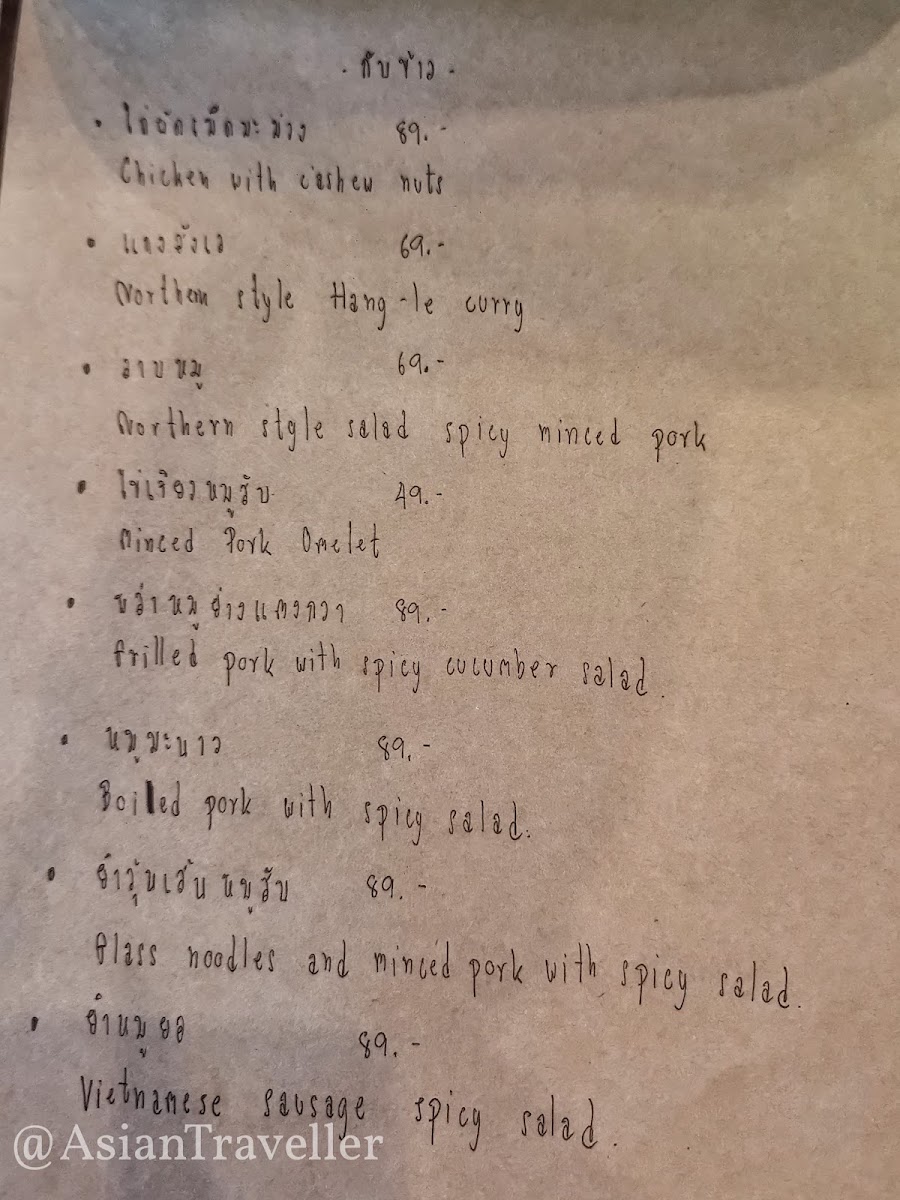 - กับข้าว -
• ไก่ผัดเม็ดมะม่วง 89.-
Chicken with cashew nuts
• แกงฮังเล 69.-
Northern style Hang-le curry
• ลาบหมู 69.-
Northern style salad spicy minced pork
• ไข่เจียวหมูสับ 49.-
Minced Pork Omelet
• พล่าหมูย่างแตงกวา 89.-
Grilled pork with spicy cucumber salad.
• หมูมะนาว 89.-
Boiled pork with spicy salad.
• ยำวุ้นเส้นหมูสับ 89.-
Glass noodles and minced pork with spicy salad.
• ยำหมูยอ 89.-
Vietnamese sausage spicy salad.
@AsianTraveller